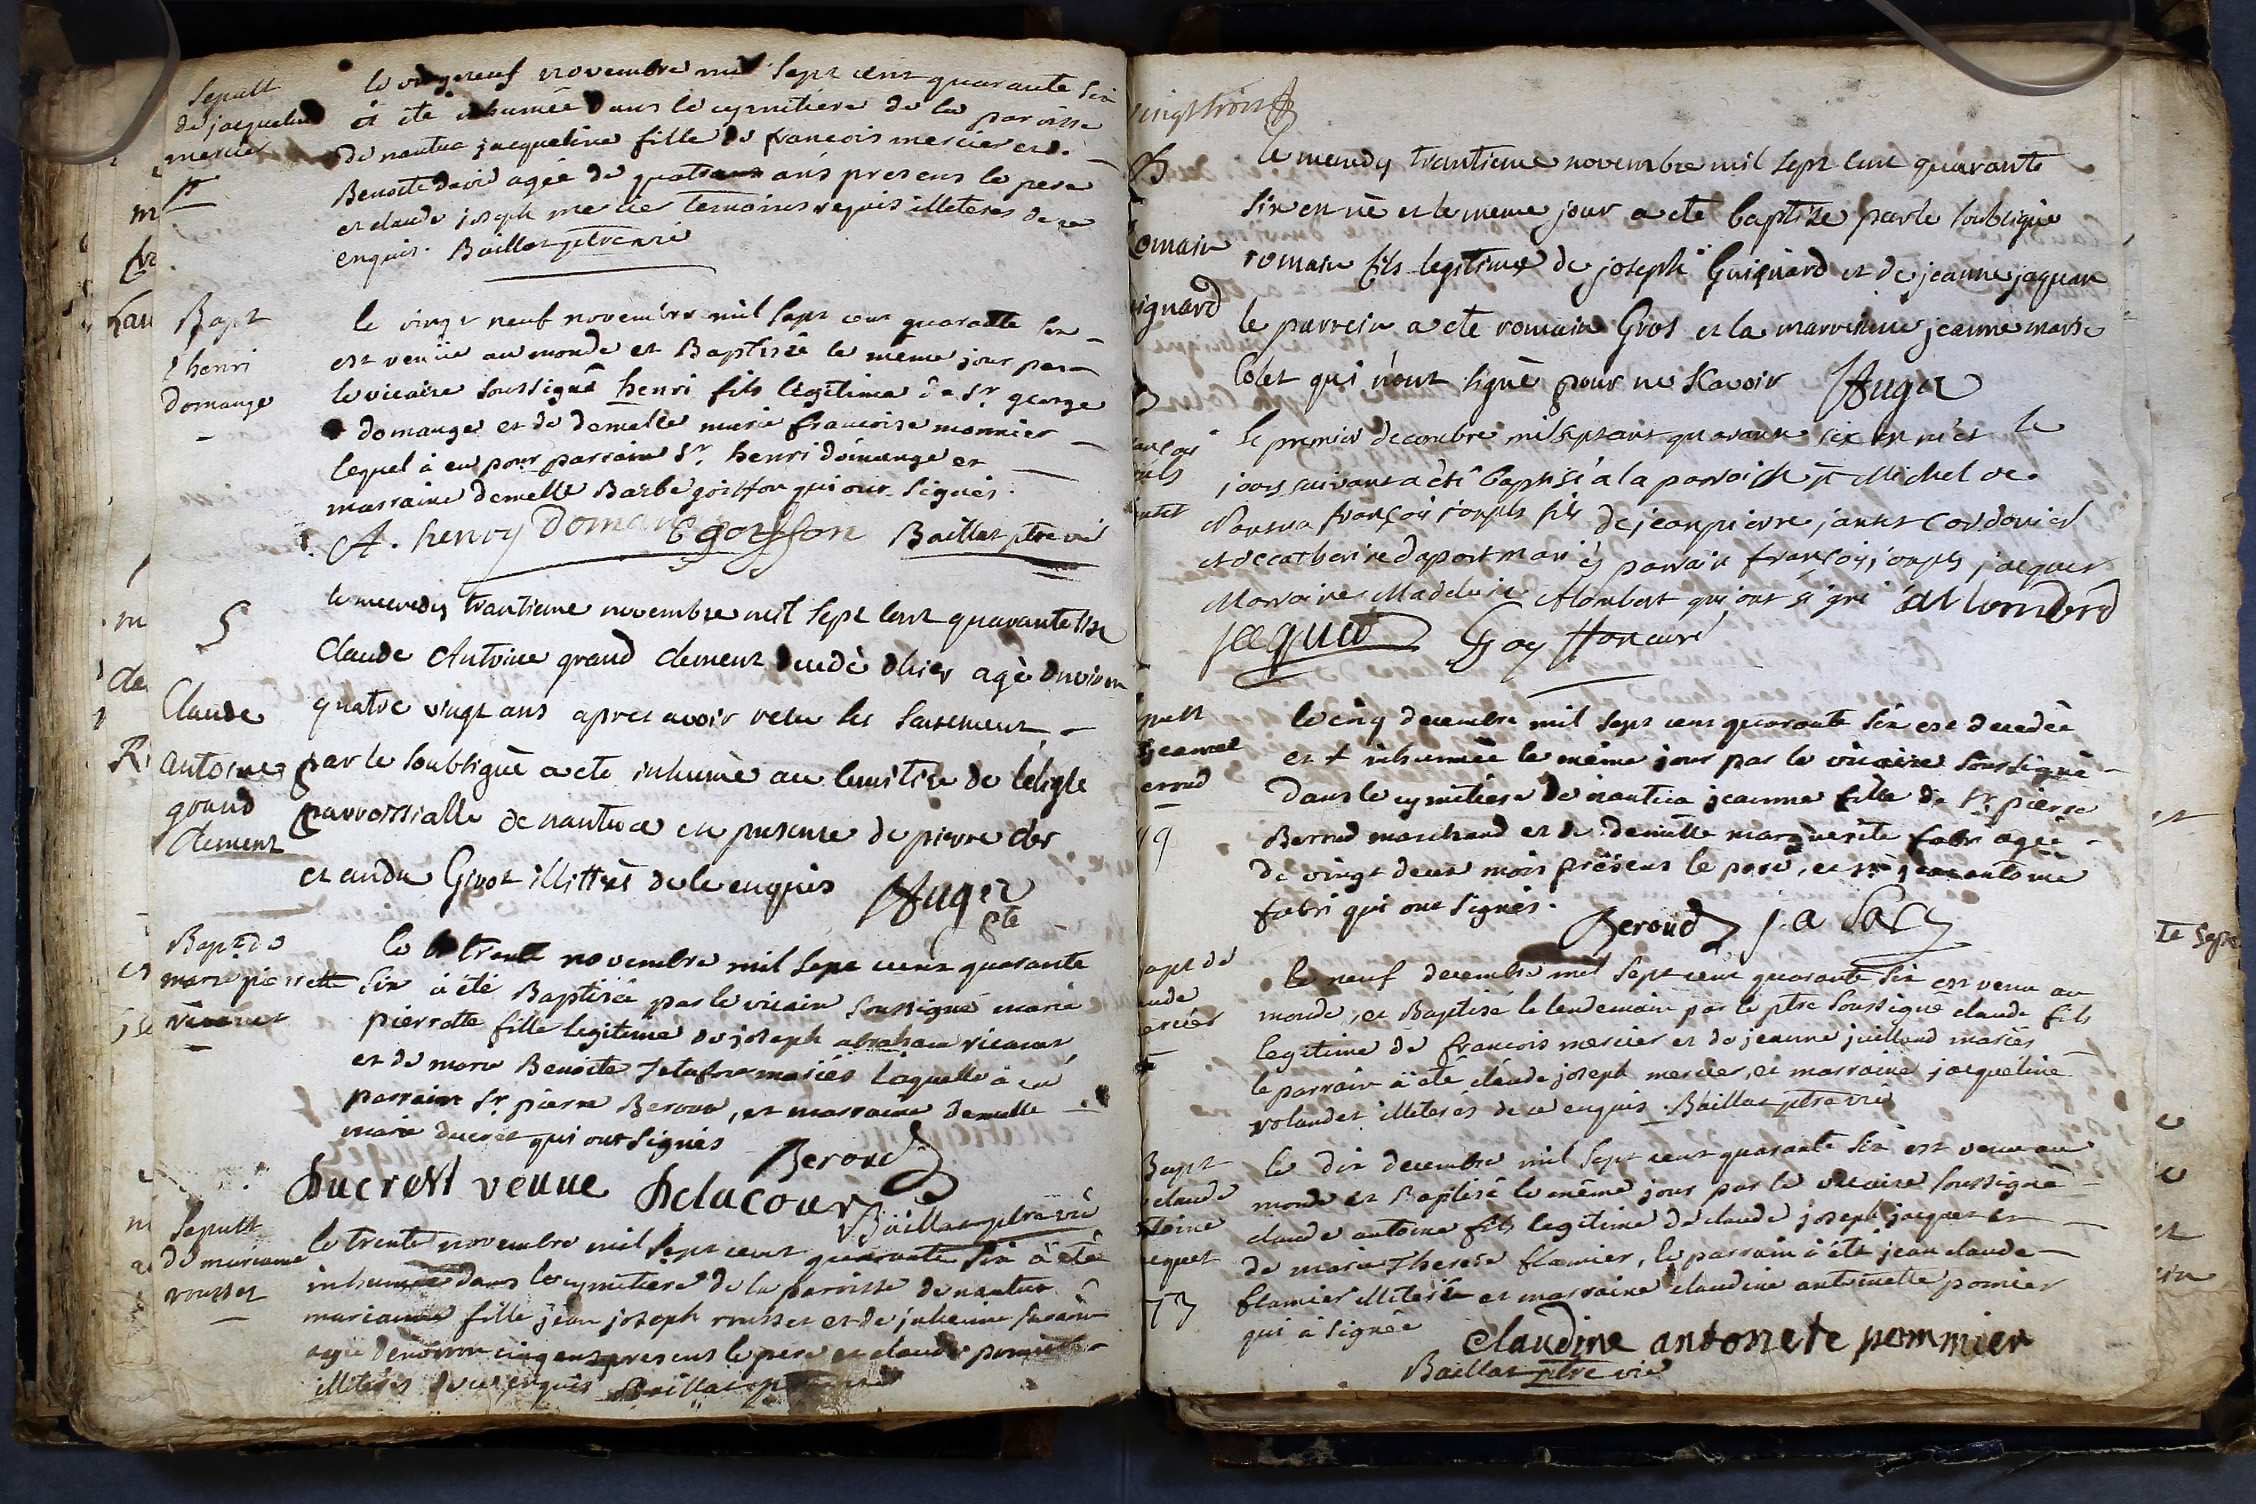 Sepult
de jacqueline
mercier
le vingt neuf novembre mil sept cent quarante six
à été inhumée dans le cymitiere de la paroisse
de nantua jacqueline fille de francois mercier et de
Benoite david agée de quatre ans presens le pere
et claude joseph mercier temoins requis illeteres de ce
enquis. Baillat ptre vic
Bapt
d'henri
domange
le vingt neuf novembre mil sept cent quarante six
est venüe au monde et Baptisé le même jour par
le vicaire soussigné henri fils legitime de Sr george
domange et de demelle marie francoise monnier
lequel à eu pour parrain Sr henri domange et
marraine demelle Barbe goiffon qui ont signés.
A. henry Domange B goiffon Baillat ptre vic
S
Claude
antoine
grand
clement
le mecredy trantieme novembre mil sept cent quarante six
Claude Antoine grand clement decedè d'hier agè d'environ
quatre vingt ans apres avoir recu les sacrement
par le soubsignè a ete inhumè au cemitiere de l'eligse
parroissialle de nantua en presence de pierre
et andre Girot illittrès de ce enquis Auger
ptre
Bapt de
marie pierrette
vicaret
le trente novembre mil sept cent quarante
six à été Baptisée par le vicaire soussigné marie
pierrotte fille legitime de joseph abraham
et de marie Benoite mariés laquelle à eu
parrain Sr pierre Beroud, et marraine demelle
marie ducret qui ont signés
Beroud
Ducrest veuue Delacour
Baillat ptre vic
Sepult
de mariane
rousset
le trente novembre mil sept cent quarante six à été
inhumée dans le cymitiere de la paroisse de nantua
mariane fille jean joseph rousset et de julienne
agée d'environ cinq ans presens le pere et claude
illiterés de ce enquis Baillat ptre vic
vingt trois
B
romain
guignard
le mecredy trantieme novembre mil sept cent quarante
six en nè et le meme jour a ete baptize par le soubsignè
romain fils legitime de joseph Guignard et de jeanne jaquan
le parrein a ete romain Gros et la marreinne jeanne marie
Colet qui n'ont signè pour ne scavoir Auger
Le premier decembre mil sept cent quarante six en né et le
jour suivant a été baptisé a la paroisse st Michel de
Nantua françois joseph fils de jean pierre jantet cordonier
et de catherine daport mariés parrain françois joseph jacquet
Marraine Madeleine Alombert qui ont signé allombert
jacquet Goyffon curé
sepult
jeanne
beroud
le cinq decembre mil sept cent quarante six est decedée
et inhumée le même jour par le vicaire soussigné
dans le cymitiere de nantua jeanne fille de Sr pierre
Beroud marchand et de demelle marguerite fabri agée
de vingt deux mois présens le pere, et Sr jean antoine
fabri qui ont signés.
Beroud j. a
bapt de
claude
mercier
le neuf decembre mil sept cent quarante six est venu au
monde, et Baptisé le lendemain par le ptre soussigné claude fils
legitime de francois mercier et de jeanne juilland mariés
le parrain à été claude joseph mercier, et marraine jacqueline
volandet illeterés de ce enquis. Baillat ptre vic
Bapt
claude
antoine
jacquet
le dix decembre mil sept cent quarante six est venu au
monde et Baptisé le même jour par le vicaire soussigné
claude antoine fils legitime de claude joseph jacquet et
de marie Therese flamier, le parrain à été jean claude
flamier illiteré et marraine claudine antoinette pomier
qui à signée
claudine antonete pommier
Baillat ptre vic